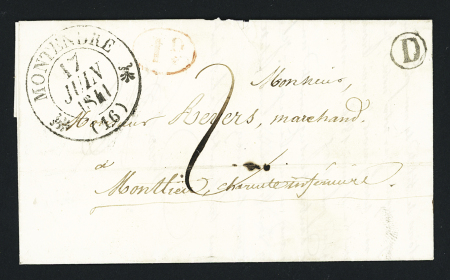 MONTENDRE
17
JUIN
1841
(16)
1 D
D
2
Monsieur,
Monsieur Reyers, marchand.
à
Montlieu, charente inférieure.